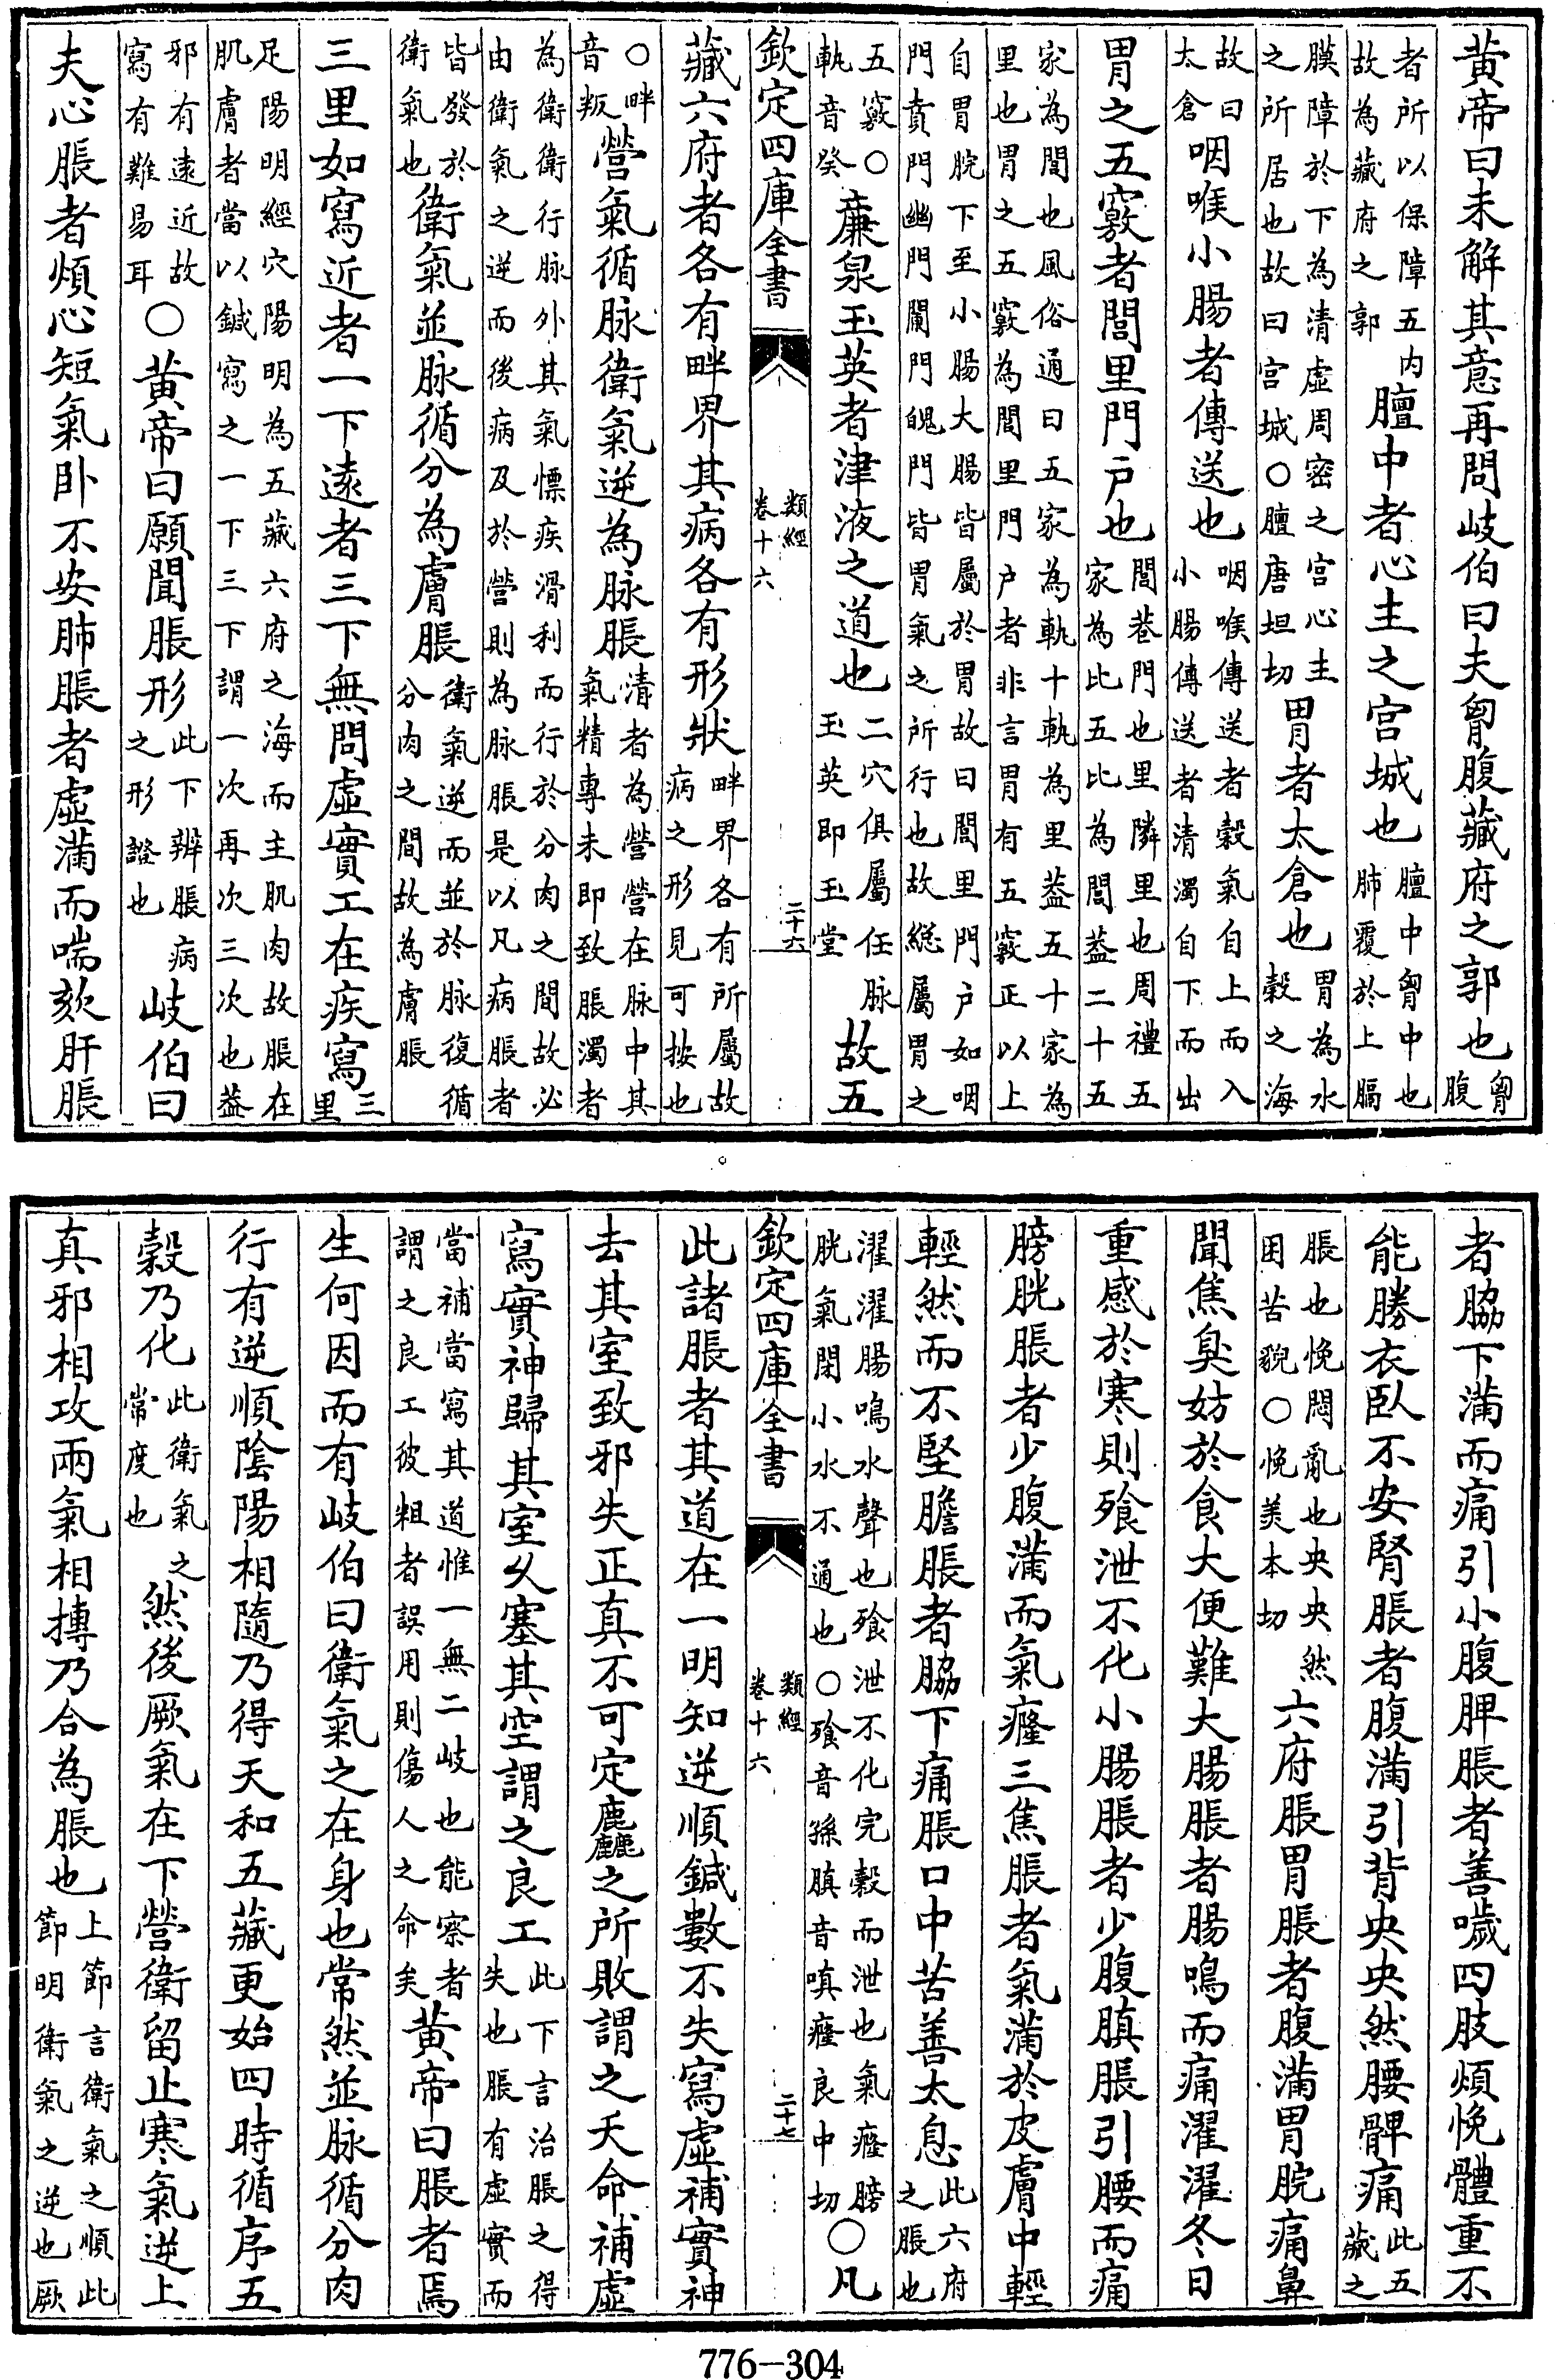 黃帝曰未解其意再問岐伯曰夫胷腹藏府之郭也胷腹
者所以保障五内故為藏府之郭膻中者心主之宫城也膻中胷中也肺覆於上膈
膜障於下為清虚周密之宫心主之所居也故曰宫城○膻唐坦切胃者太倉也胃為水榖之海
故曰太倉咽喉小腸者傳送也咽喉傳送者榖氣自上而入小腸傳送者清濁自下而出
胃之五竅者閭里門户也閭巷門也里隣里也周禮五家為比五比為閭葢二十五
家為閭也風俗通曰五家為軌十軌為里葢五十家為里也胃之五竅為閭里門户者非言胃有五竅正以上
自胃脘下至小腸大腸皆屬於胃故曰閭里門户如咽門賁門幽門闌門魄門皆胃氣之所行也故總屬胃之
五竅○軌音癸廉泉玉英者津液之道也二穴俱屬任脉玉英即玉堂故五
欽定四庫全書 類經 卷十六 二十六
藏六府者各有畔界其病各有形狀畔界各有所屬故病之形見可按也
○畔音叛營氣循脉衛氣逆為脉脹清者為營營在脉中其氣精專未即致脹濁者
為衛衛行脉外其氣慓疾滑利而行於分肉之間故必由衛氣之逆而後病及於營則為脉脹是以凡病脹者
皆發於衛氣也衛氣並脉循分為膚脹衛氣逆而並於脉復循分肉之間故為膚脹
三里如寫近者一下遠者三下無問虚實工在疾寫三里
足陽明經穴陽明為五藏六府之海而主肌肉故脹在肌膚者當以鍼寫之一下三下謂一次再次三次也葢
邪有遠近故寫有難易耳○黃帝曰願聞脹形此下辨脹病之形證也岐伯曰
夫心脹者煩心短氣卧不安肺脹者虚滿而喘欬肝脹
者脇下滿而痛引小腹脾脹者善噦四肢煩悗體重不
能勝衣臥不安腎脹者腹滿引背央央然腰髀痛此五藏之
脹也悗悶亂也央央然困苦貌○悗美本切六府脹胃脹者腹滿胃脘痛鼻
聞焦臭妨於食大便難大腸脹者腸鳴而痛濯濯冬日
重感於寒則飱泄不化小腸脹者少腹䐜脹引腰而痛
膀胱脹者少腹滿而氣癃三焦脹者氣滿於皮膚中輕
輕然而不堅膽脹者脇下痛脹口中苦善太息此六府之脹也
濯濯腸鳴水聲也飱泄不化完榖而泄也氣癃膀胱氣閉小水不通也○飱音孫䐜音嗔癃良中切○凡
欽定四庫全書 類經 卷十六 二十七
此諸脹者其道在一明知逆順鍼數不失寫虚補實神
去其室致邪失正真不可定麤之所敗謂之夭命補虚
寫實神歸其室乆塞其空謂之良工此下言治脹之得失也脹有虚實而
當補當寫其道惟一無二岐也能察者謂之良工彼粗者誤用則傷人之命矣黃帝曰脹者焉
生何因而有岐伯曰衛氣之在身也常然並脉循分肉
行有逆順陰陽相隨乃得天和五藏更始四時循序五
榖乃化此衛氣之常度也然後厥氣在下營衛留止寒氣逆上
真邪相攻兩氣相摶乃合為脹也上節言衛氣之順此節明衛氣之逆也厥
776-304